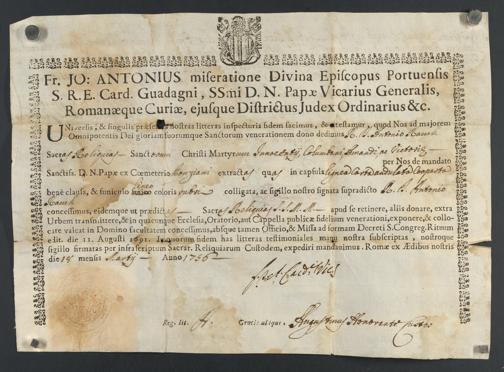 Fr. JO: ANTONIUS miseratione Divina Episcopus Portuensis
S. R. E. Card. Guadagni, SSmi D. N. Papæ Vicarius Generalis,
Romanæque Curiæ, ejusque Districtus Judex Ordinarius &c.
UNiversis, & singulis præsentes nostras litteras inspecturis fidem facimus, & attestamur, quod Nos ad majorem
Omnipotentis Dei gloriam suorumque Sanctorum venerationem dono dedimus Antonio
Sacras Reliquias Sanctorum Christi Martyrum Innocentij, Columbani Amandi ac Victoriæ
per Nos de mandato
Sanctis. D. N. Papæ ex Cœmeterio extractas quas in capsula lignea Carta
bene clausa, & funiculo coloris rubri colligata, ac sigillo nostro signata supradicto Antonio
concessimus, eidemque ut prædictas Sacras Reliquias apud se retinere, aliis donare, extra
Urbem transmittere, & in quacunque Ecclesia, Oratorio, aut Cappella publicæ fidelium venerationi, exponere, & collocare
valeat in Domino facultatem concessimus, absque tamen Officio, & Missa ad formam Decreti S. Congreg. Rituum
edit. die 11. Augusti 1691. In quorum fidem has litteras testimoniales manu nostra subscriptas, nostroque
sigillo firmatas per infrascriptum Sacrar. Reliquiarum Custodem, expediri mandavimus. Romæ ex Ædibus nostris
die 15 mensis Martij Anno 1756
Reg. lib. Gratis ubique.